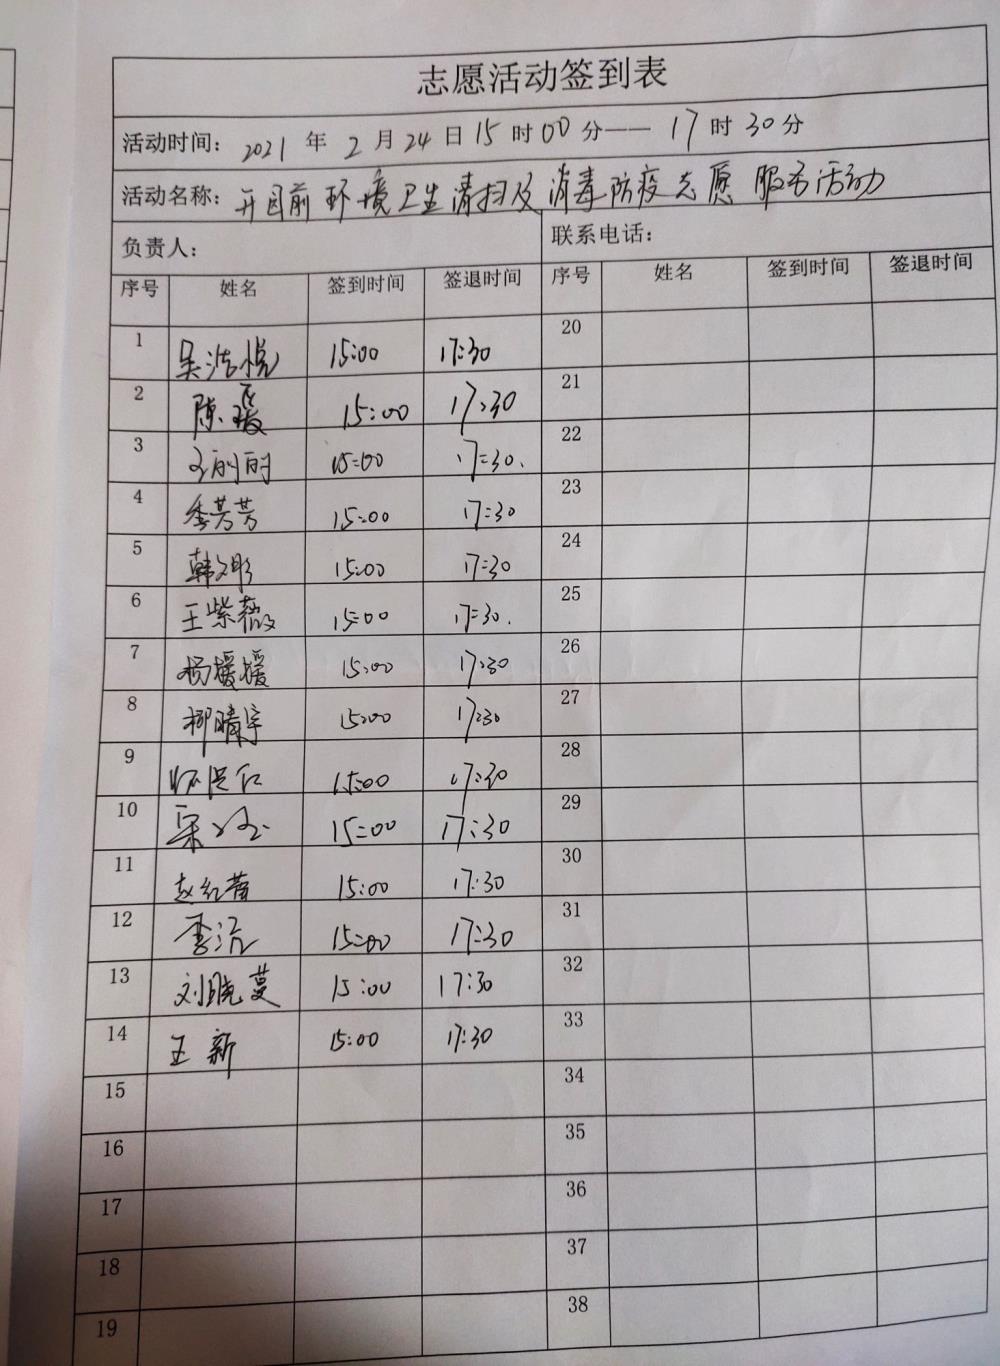 志愿活动签到表
活动时间: 2021 年 2 月 24 日 15 时 00 分—— 17 时 30 分
活动名称: 开园前环境卫生清扫及消毒防疫志愿服务活动
负责人: 联系电话:
序号 姓名 签到时间 签退时间 序号 姓名 签到时间 签退时间
1 吴浩悦 15:00 17:30 20
2 陈瑷 15:00 17:30 21
3 丽丽 15:00 17:30. 22
4 季芳芳 15:00 17:30 23
5 韩文彤 15:00 17:30 24
6 王紫薇 15:00 17:30. 25
7 杨媛媛 15:00 17:30 26
8 柳晴宇 15:00 17:30 27
9 15:00 17:30 28
10 15:00 17:30 29
11 赵红蕾 15:00 17:30 30
12 李沅 15:00 17:30 31
13 刘晓蔓 15:00 17:30 32
14 王新 15:00 17:30 33
15 34
16 35
17 36
18 37
19 38